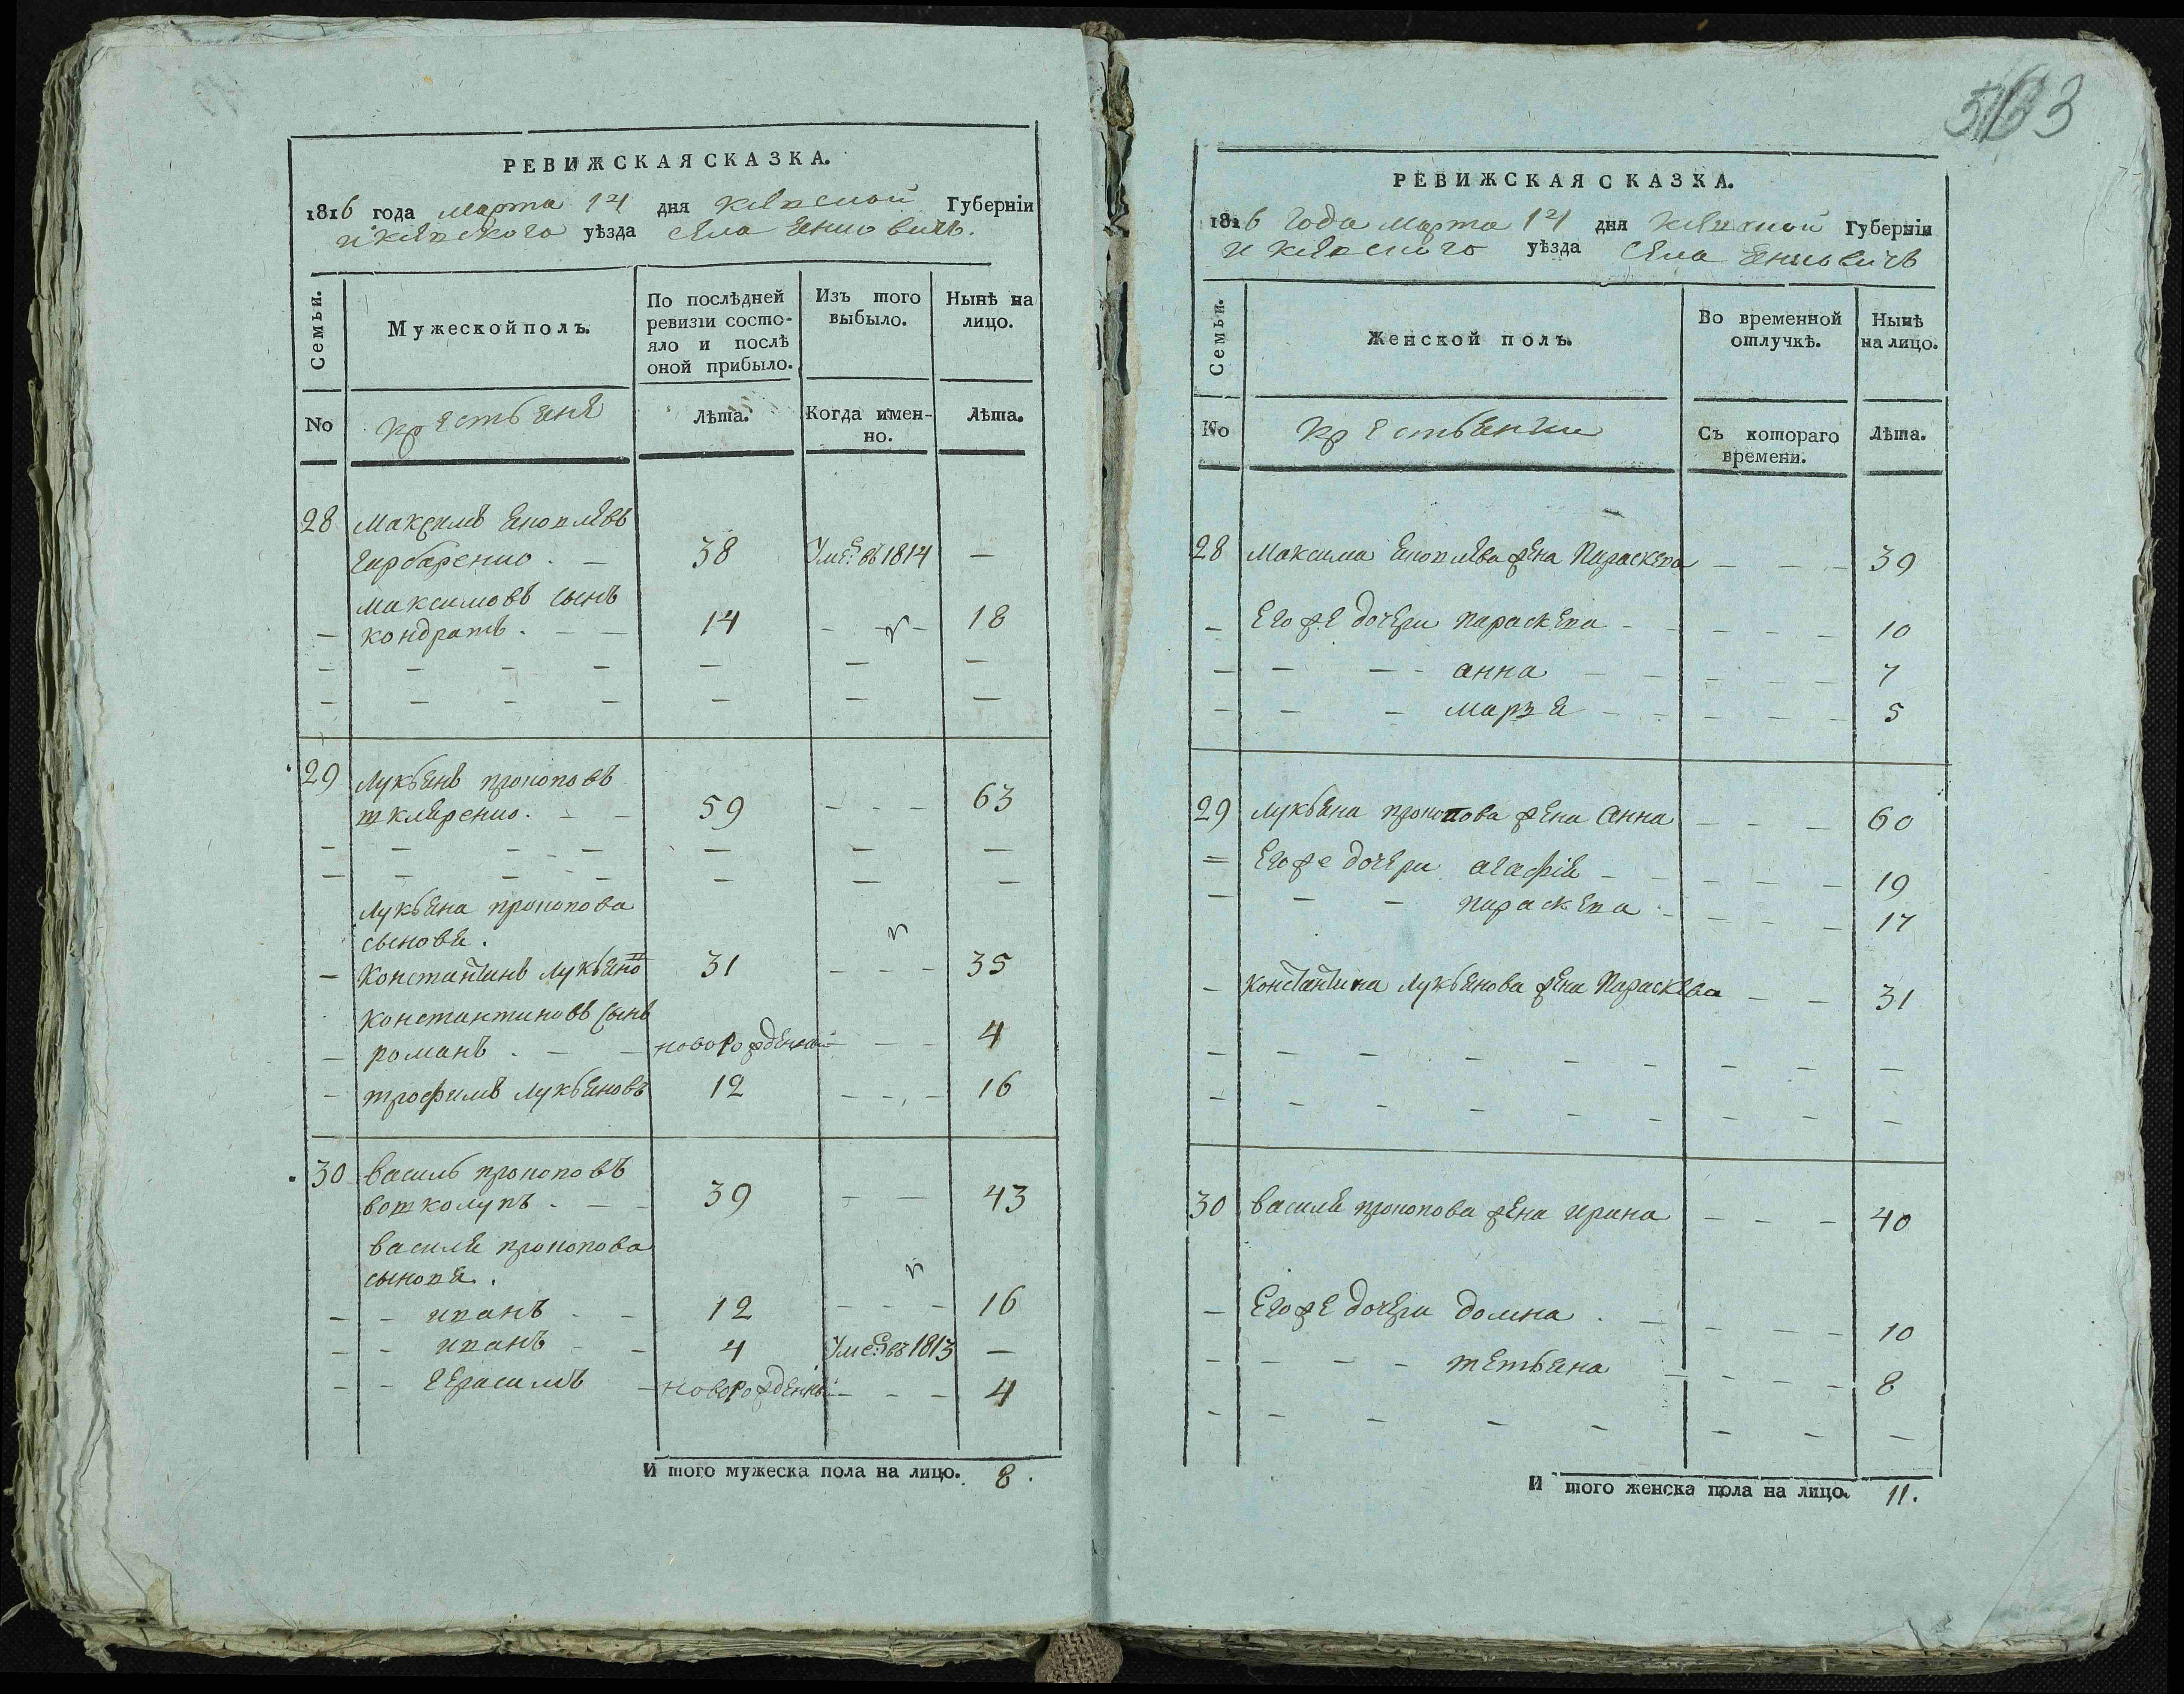 РЕВИЖСКАЯ СКАЗКА.
1816 года марта 14 дня киевской Губерніи
и киевского уѣзда села Янковичь.
Семьи.
Мужеской полъ.
По послѣдней ревизіи состояло и послѣ оной прибыло.
Изъ того выбыло.
Нынѣ на лицо.
No
крестьяне
Лѣта.
Когда имен-
но.
Лѣта.
28 Максимъ
Гарбаренко. — 38 Уме: въ 1814 —
Максимовъ сынъ
— кондратъ. — — 14 — — 18
29 Лукьянъ прокоповъ
шкляренко. — — 59 — — — 63
Лукьяна прокопова
сыновья.
— Константинъ Лукьяно 31 — — — 35
константиновъ сынъ
— романъ. — — новорожденный — — 4
— трофимъ Лукьяновъ 12 — — — 16
30 василь прокоповъ
вотколупъ. — — 39 — — 43
василя прокопова
сыновя.
— — иванъ — — 12 — — — 16
— — иванъ — — 4 Уме: въ 1813 —
— — герасимъ — новорожденны — — — 4
И того мужеска пола на лицо. 8.
5163
РЕВИЖСКАЯ СКАЗКА.
1816 года марта 14 дня киевской Губерніи
и киевского уѣзда села Янковичь
Семьи.
Женской полъ.
Во временной отлучкѣ.
Нынѣ на лицо.
No
крестьянки
Съ котораго времени.
Лѣта.
28 Максима жена Параскева — — — 39
— Его же дочери параскева — — — — — 10
— — — — анна — — — — — 7
— — — марья — — — — — 5
29 лукьяна прокопова жена анна — — — 60
= Его же дочери агафія — — — — — 19
— — — параскева — — — — 17
— Константина Лукьянова жена Параскева — — 31
30 василя прокопова жена ирина — — — 40
— Его же дочери домна . — — — — 10
— — — — тетьяна — — — — 8
И того женска пола на лицо. 11.